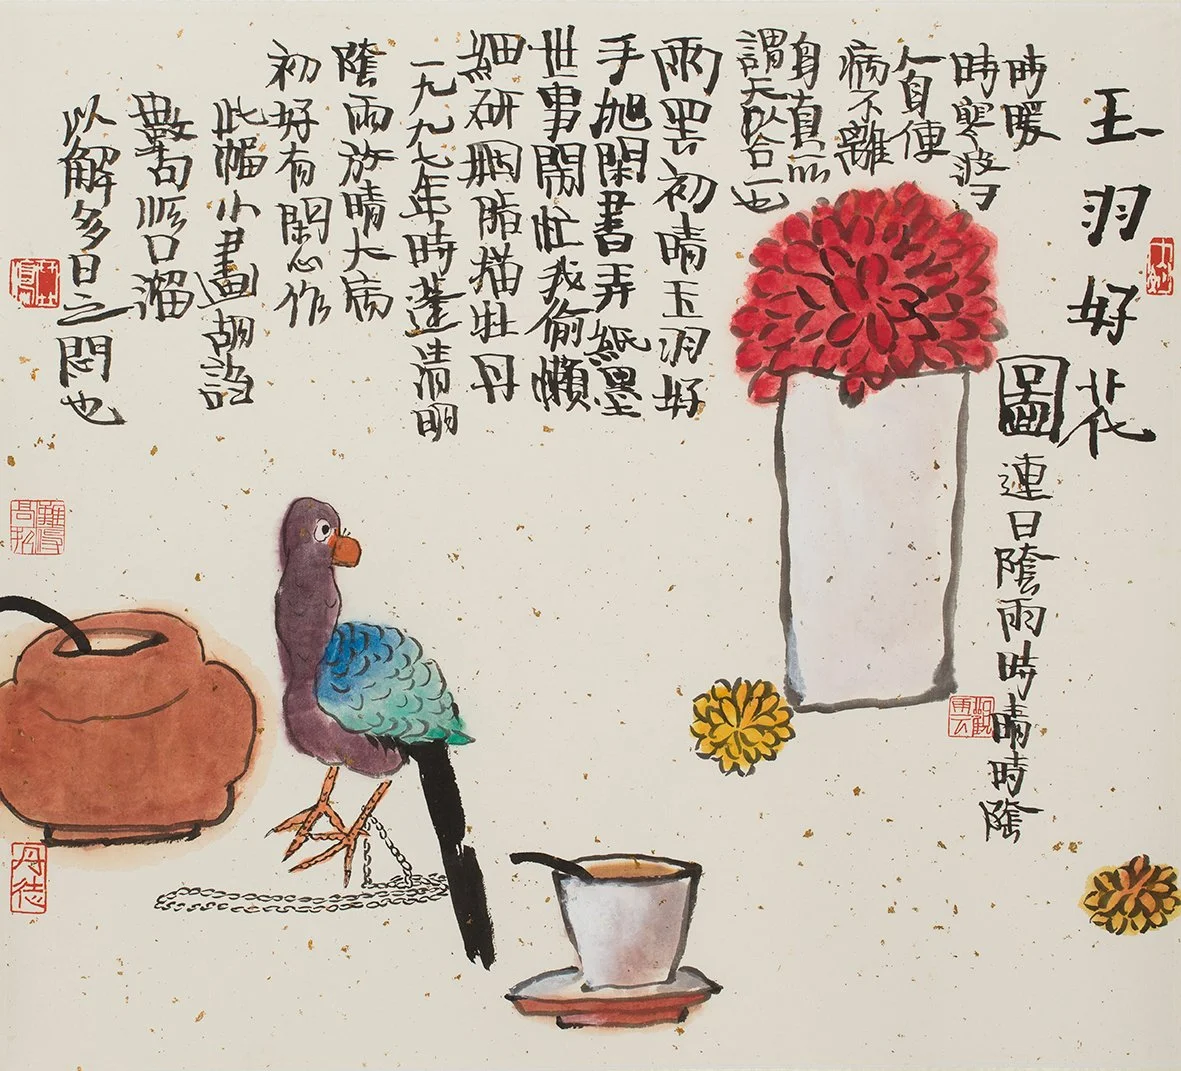 玉羽好花
圖 連日陰雨時晴時陰
時暖
時寒
人自便
病不離
身真所
謂天人合一也
雨罢初晴玉羽好
手閑書弄紙墨
世事鬧忙我偷懶
細研胭脂描牡丹
一九九七年時逢清明
陰雨放晴大病
初好有閑心作
此幅小畫胡謅
數句順口溜
以解多日之悶也
丹徒